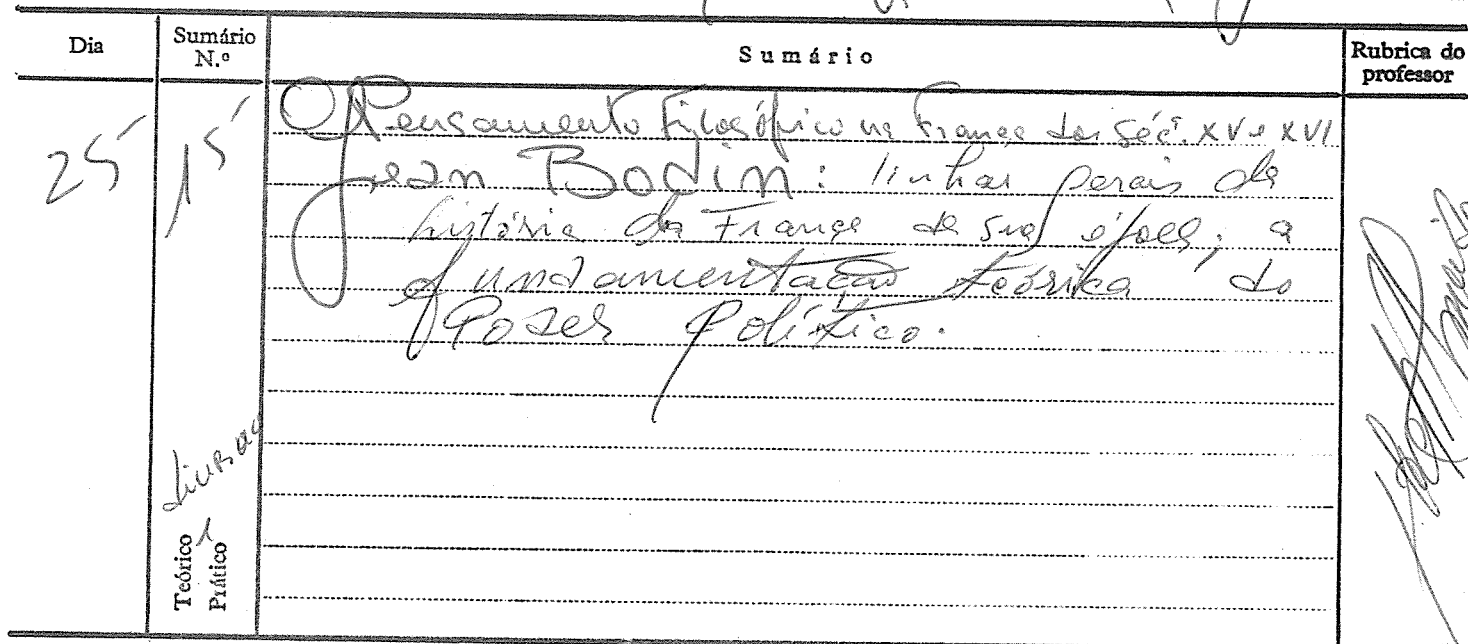 Dia
Sumário
N.º
Sumário
Rubrica do
professor
25
15
O Pensamento Filosófico na França dos Séc. XV e XVI
Jean Bodin: linhas gerais da
história da França de sua época; a
fundamentação teórica do
Poder Político.
Teórico
Prático